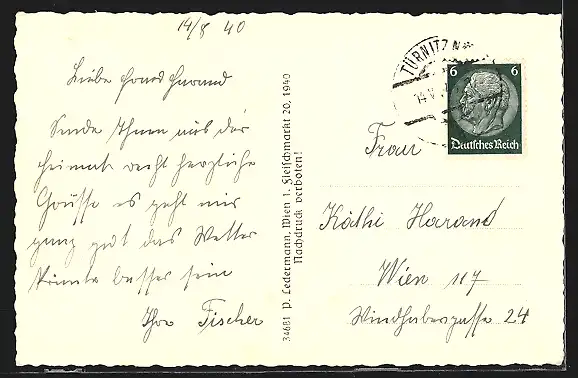 14/8 40
Liebe Frau Harand
Sende Ihnen aus der
Heimat recht herzliche
Grüsse es geht mir
ganz gut das Wetter
könnte besser sein
Ihr Fischer
34681 P. Ledermann, Wien 1, Fleischmarkt 20, 1940
Nachdruck verboten!
TÜRNITZ
14.V
6 6
Deutsches Reich
Frau
Käthi Harand
Wien 117
Windhabergasse 24